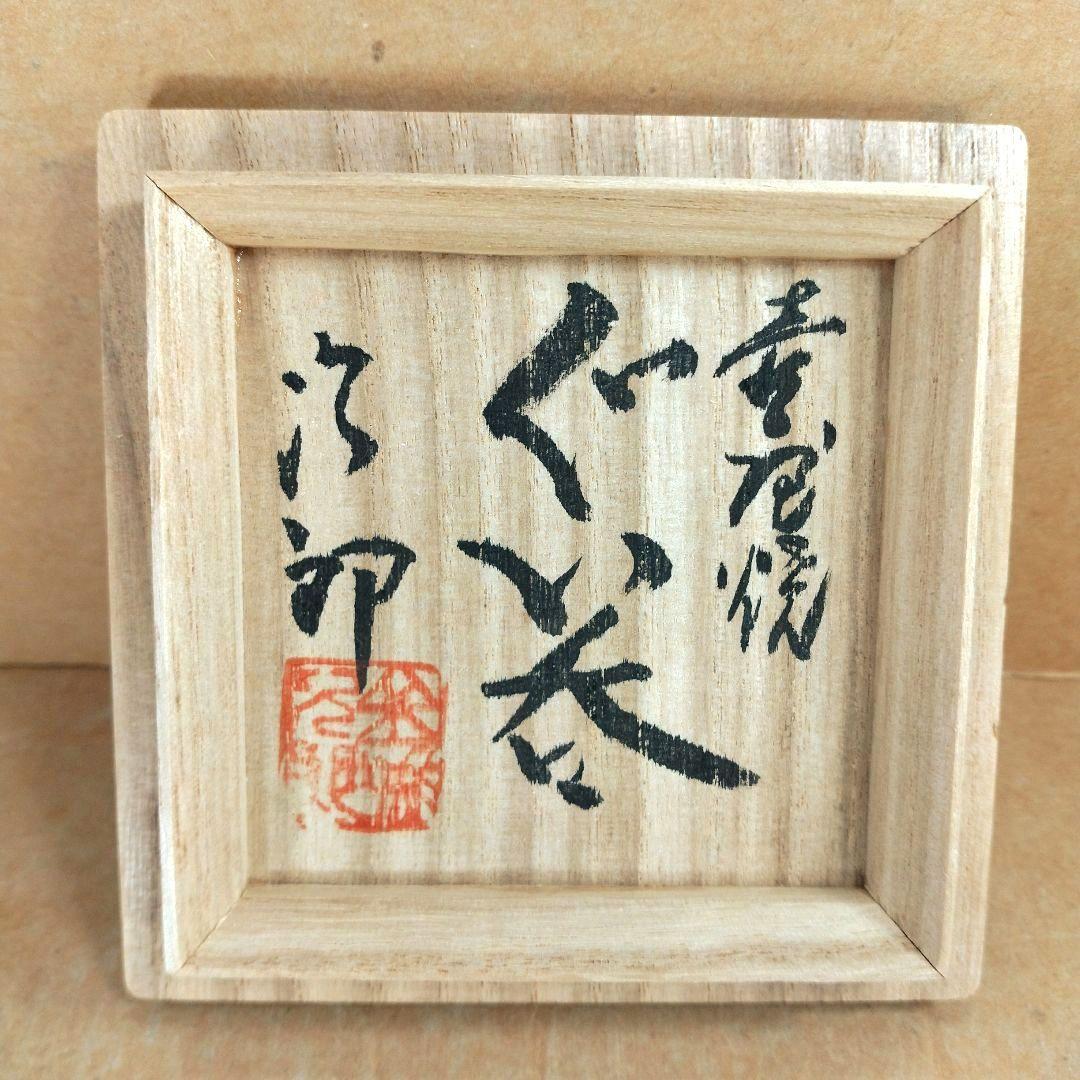 壺屋焼
ぐい呑
次郎